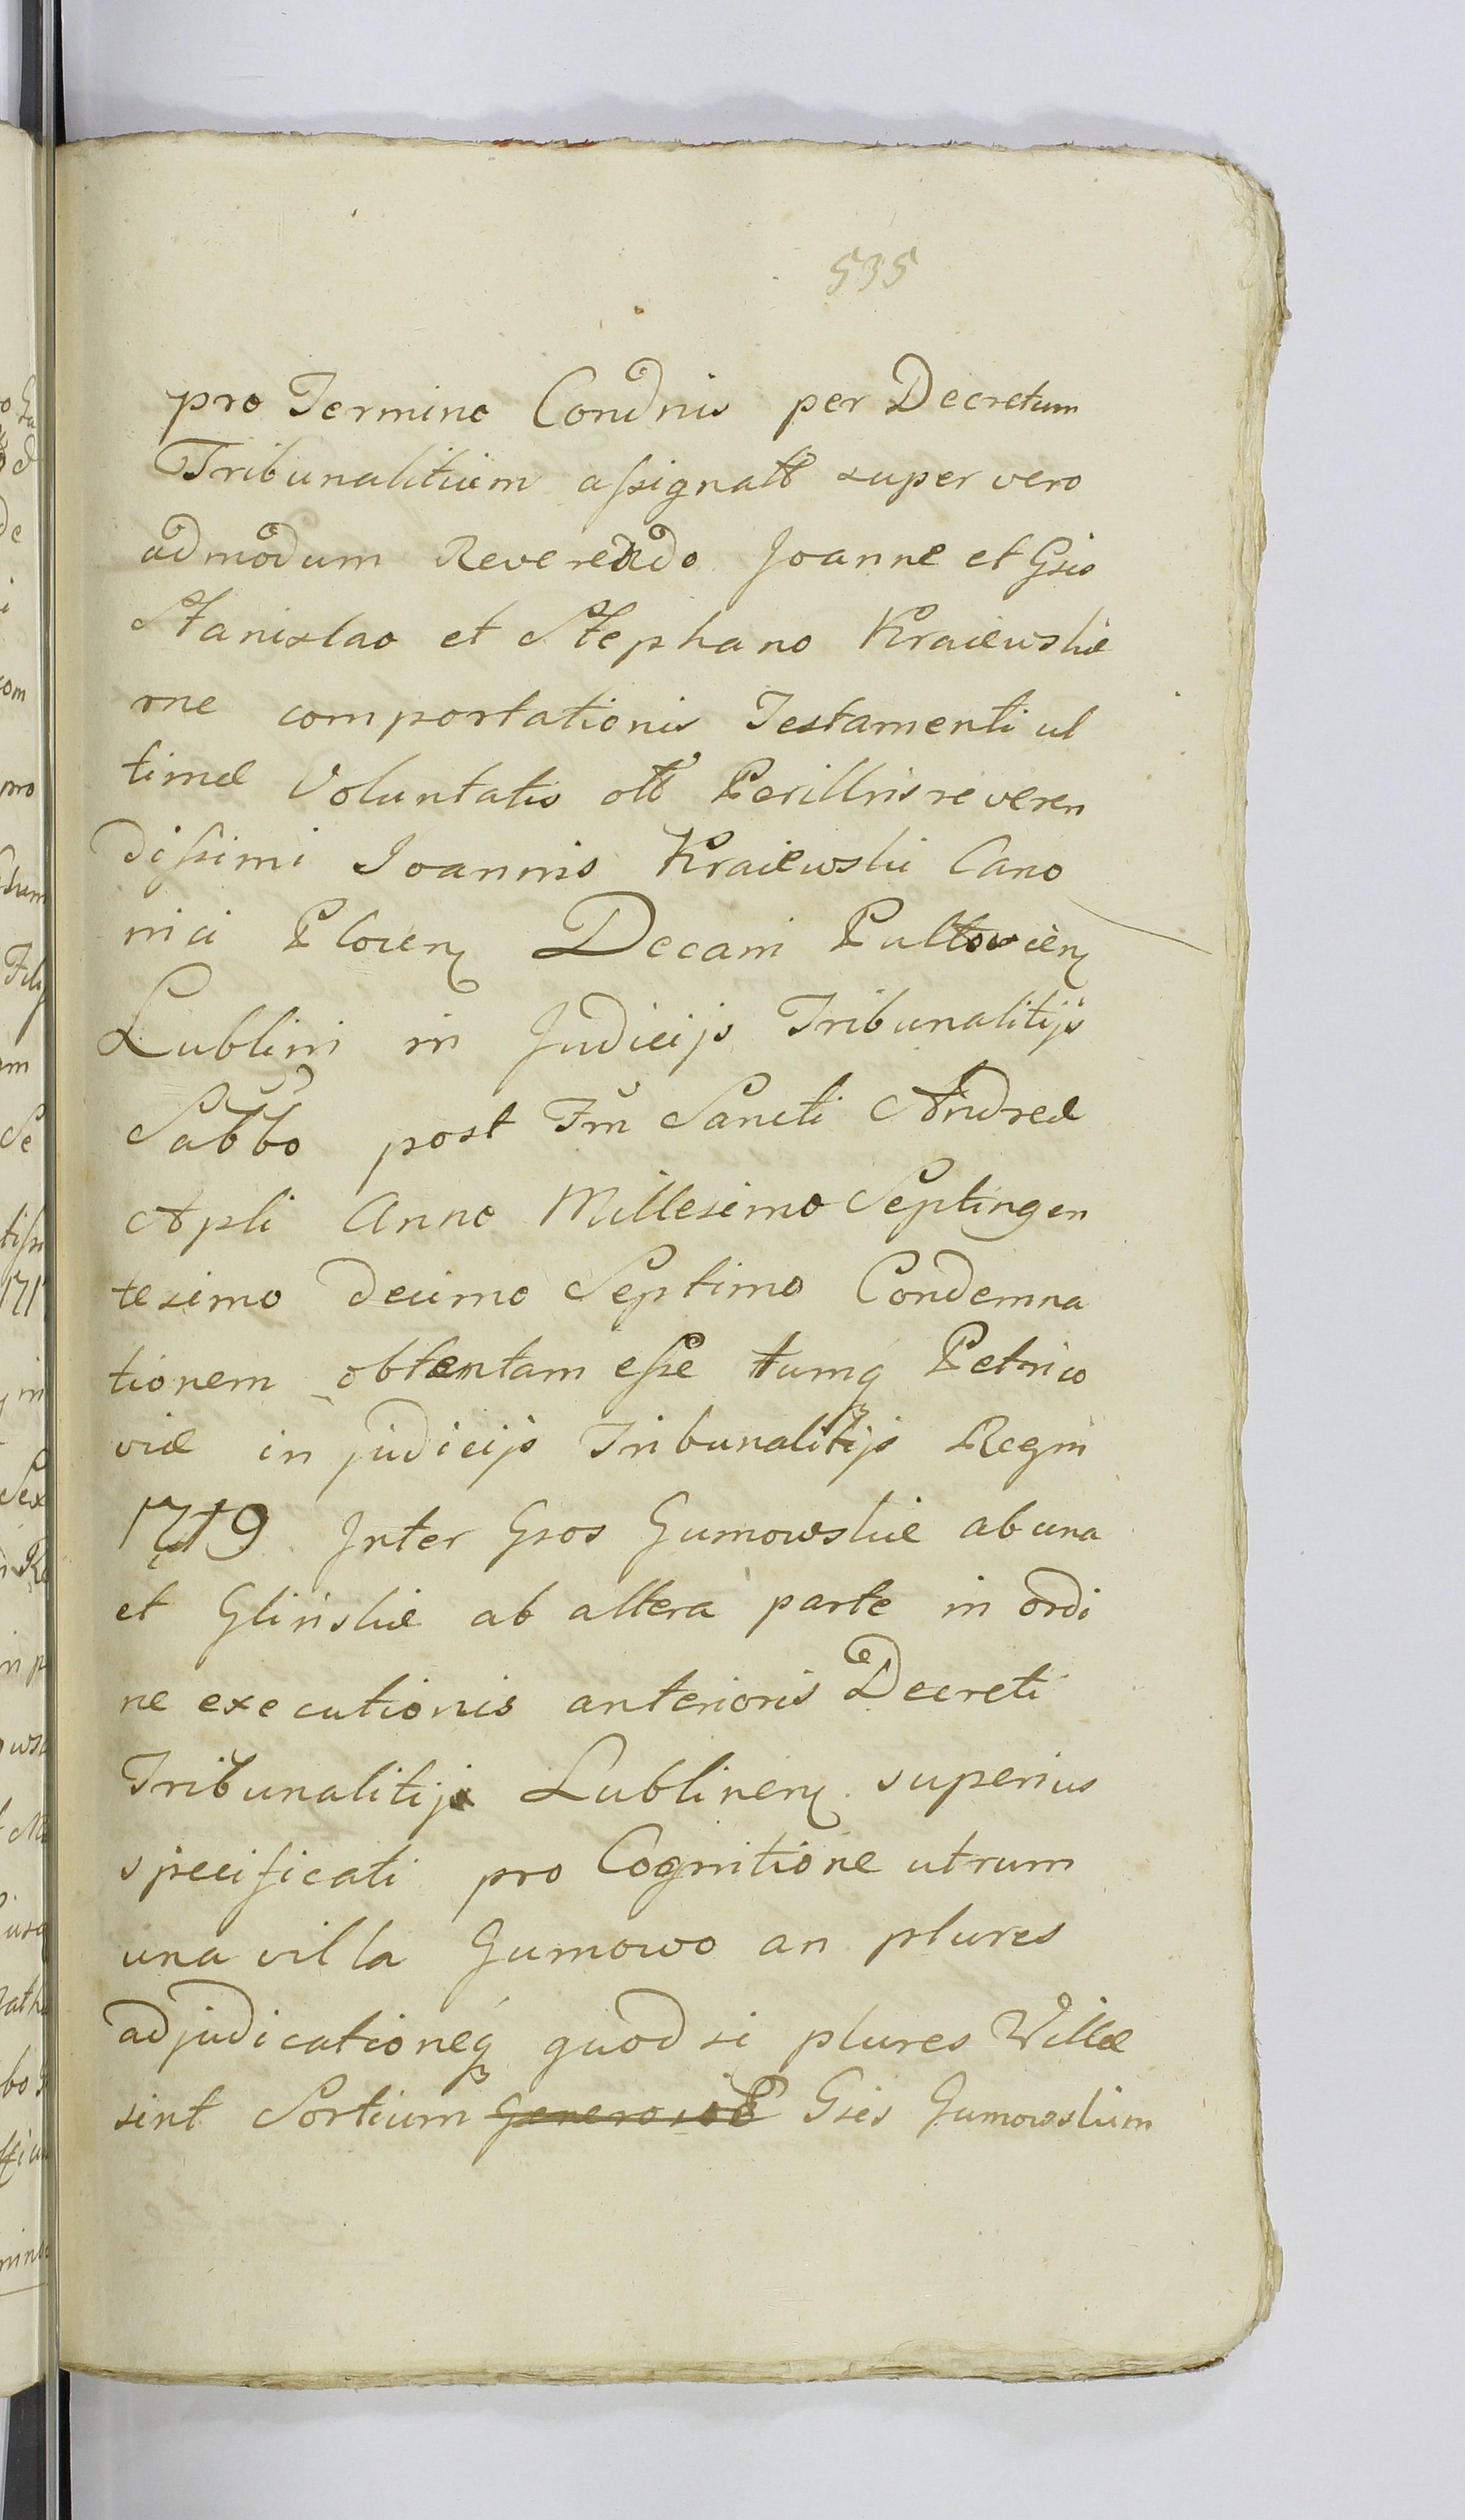 535
pro Termino Condnis per Decretum
Tribunalitium assignatt super vero
admodum Reverendo Joanne et Gsis
Stanislao et Stephano Kraiewskie
rne comportationis Testamenti ul
timæ Voluntatis ott Perillris reveren
dissimi Joannis Kraiewski Cano
nici Plocen Decani Pultovien
Lublini in Judicijs Tribunalitijs
Sabbo post Fm Sancti Andreæ
Apli Anno Millesimo Septingen
tesimo decimo Septimo Condemna
tionem obtentam esse tumq Petrico
viæ in judicijs Tribunalitijs Regni
1719 Inter Gsos Gumowskie ab una
et Glinskie ab altera parte in ordi
ne executionis anterioris Decreti
Tribunalitij Lublinen superius
specificati pro Cognitione utrum
una villa Gumowo an plures
adjudicationeq quod si plures Villæ
sint Sortium Gsis Gumowskim